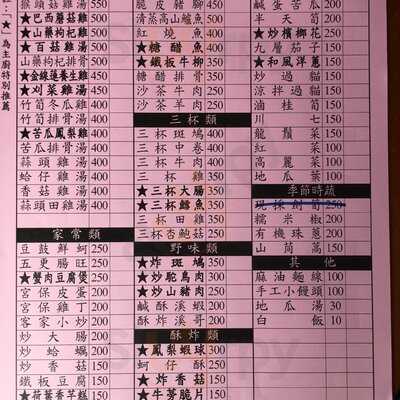 註:「★」為主廚特別推薦
猴頭菇雞湯 550
★巴西蘑菇雞 500
★百菇雞湯 500
山藥枸杞雞 500
★金線蓮養生雞 450
★刈菜雞湯 450
竹筍冬瓜雞 400
竹筍排骨湯 400
★苦瓜鳳梨雞 400
苦瓜排骨湯 400
蒜頭雞湯 400
蛤仔雞湯 400
香菇雞湯 400
蒜頭田雞湯 400
家常類
豆鼓鮮蚵 250
五更腸旺 250
★蟹肉豆腐煲 250
宮保皮蛋 200
宮保雞丁 200
客家小炒 200
炒大腸 200
炒蛤蠣 200
炒香菇 150
鐵板豆腐 150
★荷葉香芋糕 150
脆皮豬腳 450
清蒸高山鱸魚 500
紅燒魚 400
★糖醋魚 400
★鐵板牛柳 350
糖醋排骨 350
沙茶牛肉 250
沙茶羊肉 250
三杯類
三杯斑鳩 400
三杯中卷 400
三杯雞 350
三杯牛肉 350
★三杯大腸 350
★三杯鱔魚 350
三杯田雞 350
三杯杏鮑菇 250
野味類
★炸斑鳩 350
★炒鴕鳥肉 350
★炒山豬肉 250
鹹酥溪蝦 200
酥炸溪哥 200
酥炸類
★鳳梨蝦球 300
蚵仔酥 250
★炸香菇 150
★牛蒡脆片 150
鹹蛋苦瓜 200
半天筍 200
★炒檳榔花 250
九層茄子 150
★和風洋蔥 150
炒過貓 150
涼拌過貓 150
滷桂筍 150
川七 150
龍鬚菜 150
紅菜 100
高麗菜 100
地瓜葉 100
季節時蔬
現採劍筍 250
糯米椒 200
有機珠蔥 200
山茼萵 150
其他
麻油麵線 100
手工小饅頭 100
地瓜湯 30
白飯 10